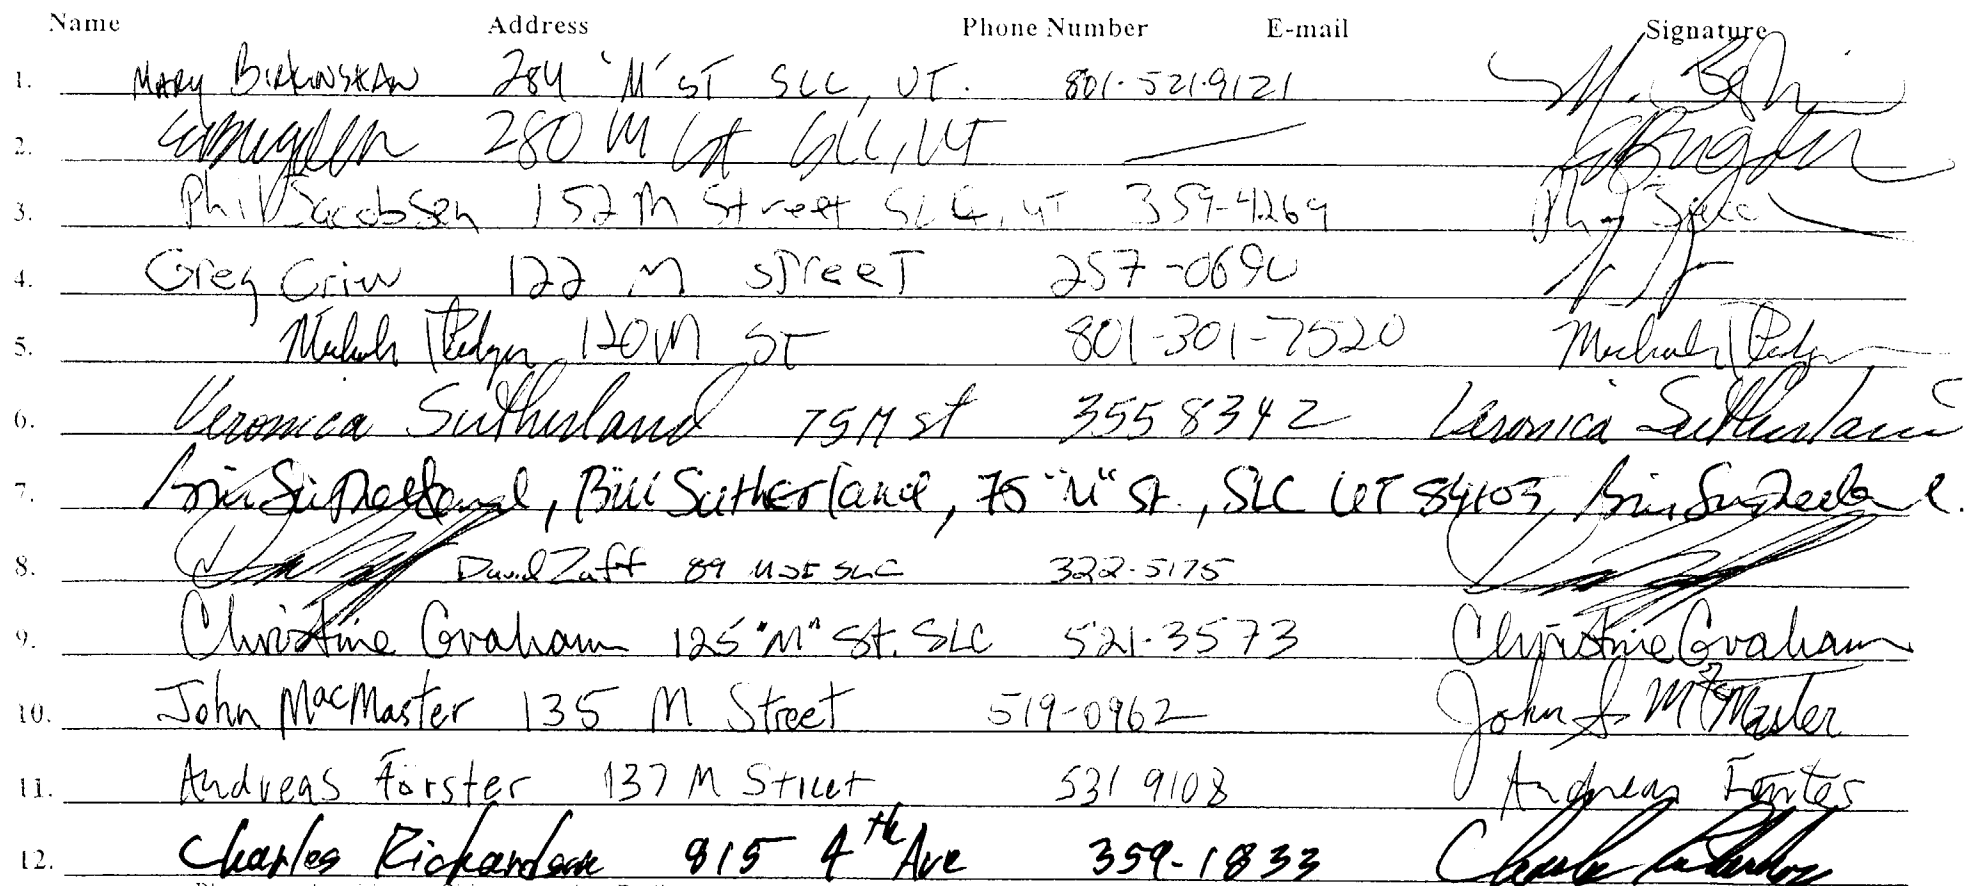 Name Address Phone Number E-mail Signature
1. MARY BIRKINSHAW 284 "M" ST SLC, UT. 801-521-9121
2. 280 M St SLC, UT —
3. Phil Jacobsen 152 M Street SLC, UT 359-4269
4. Greg 122 M STREET 257-0690
5. 120 M ST 801-301-7520
6. Veronica Sutherland 75 M st 355 8342 Veronica Sutherland
7. Bill Sutherland, 75 "M" St., SLC UT 84103
8. David Zaft 89 M ST SLC 322-5175
9. Christine Graham 125 "M" St. SLC 521-3573 Christine Graham
10. John MacMaster 135 M Street 519-0962 John S MacMaster
11. Andreas Förster 137 M Street 531 9108 Andreas Förster
12. Charles Richardson 815 4th Ave 359-1833 Charles Richardson